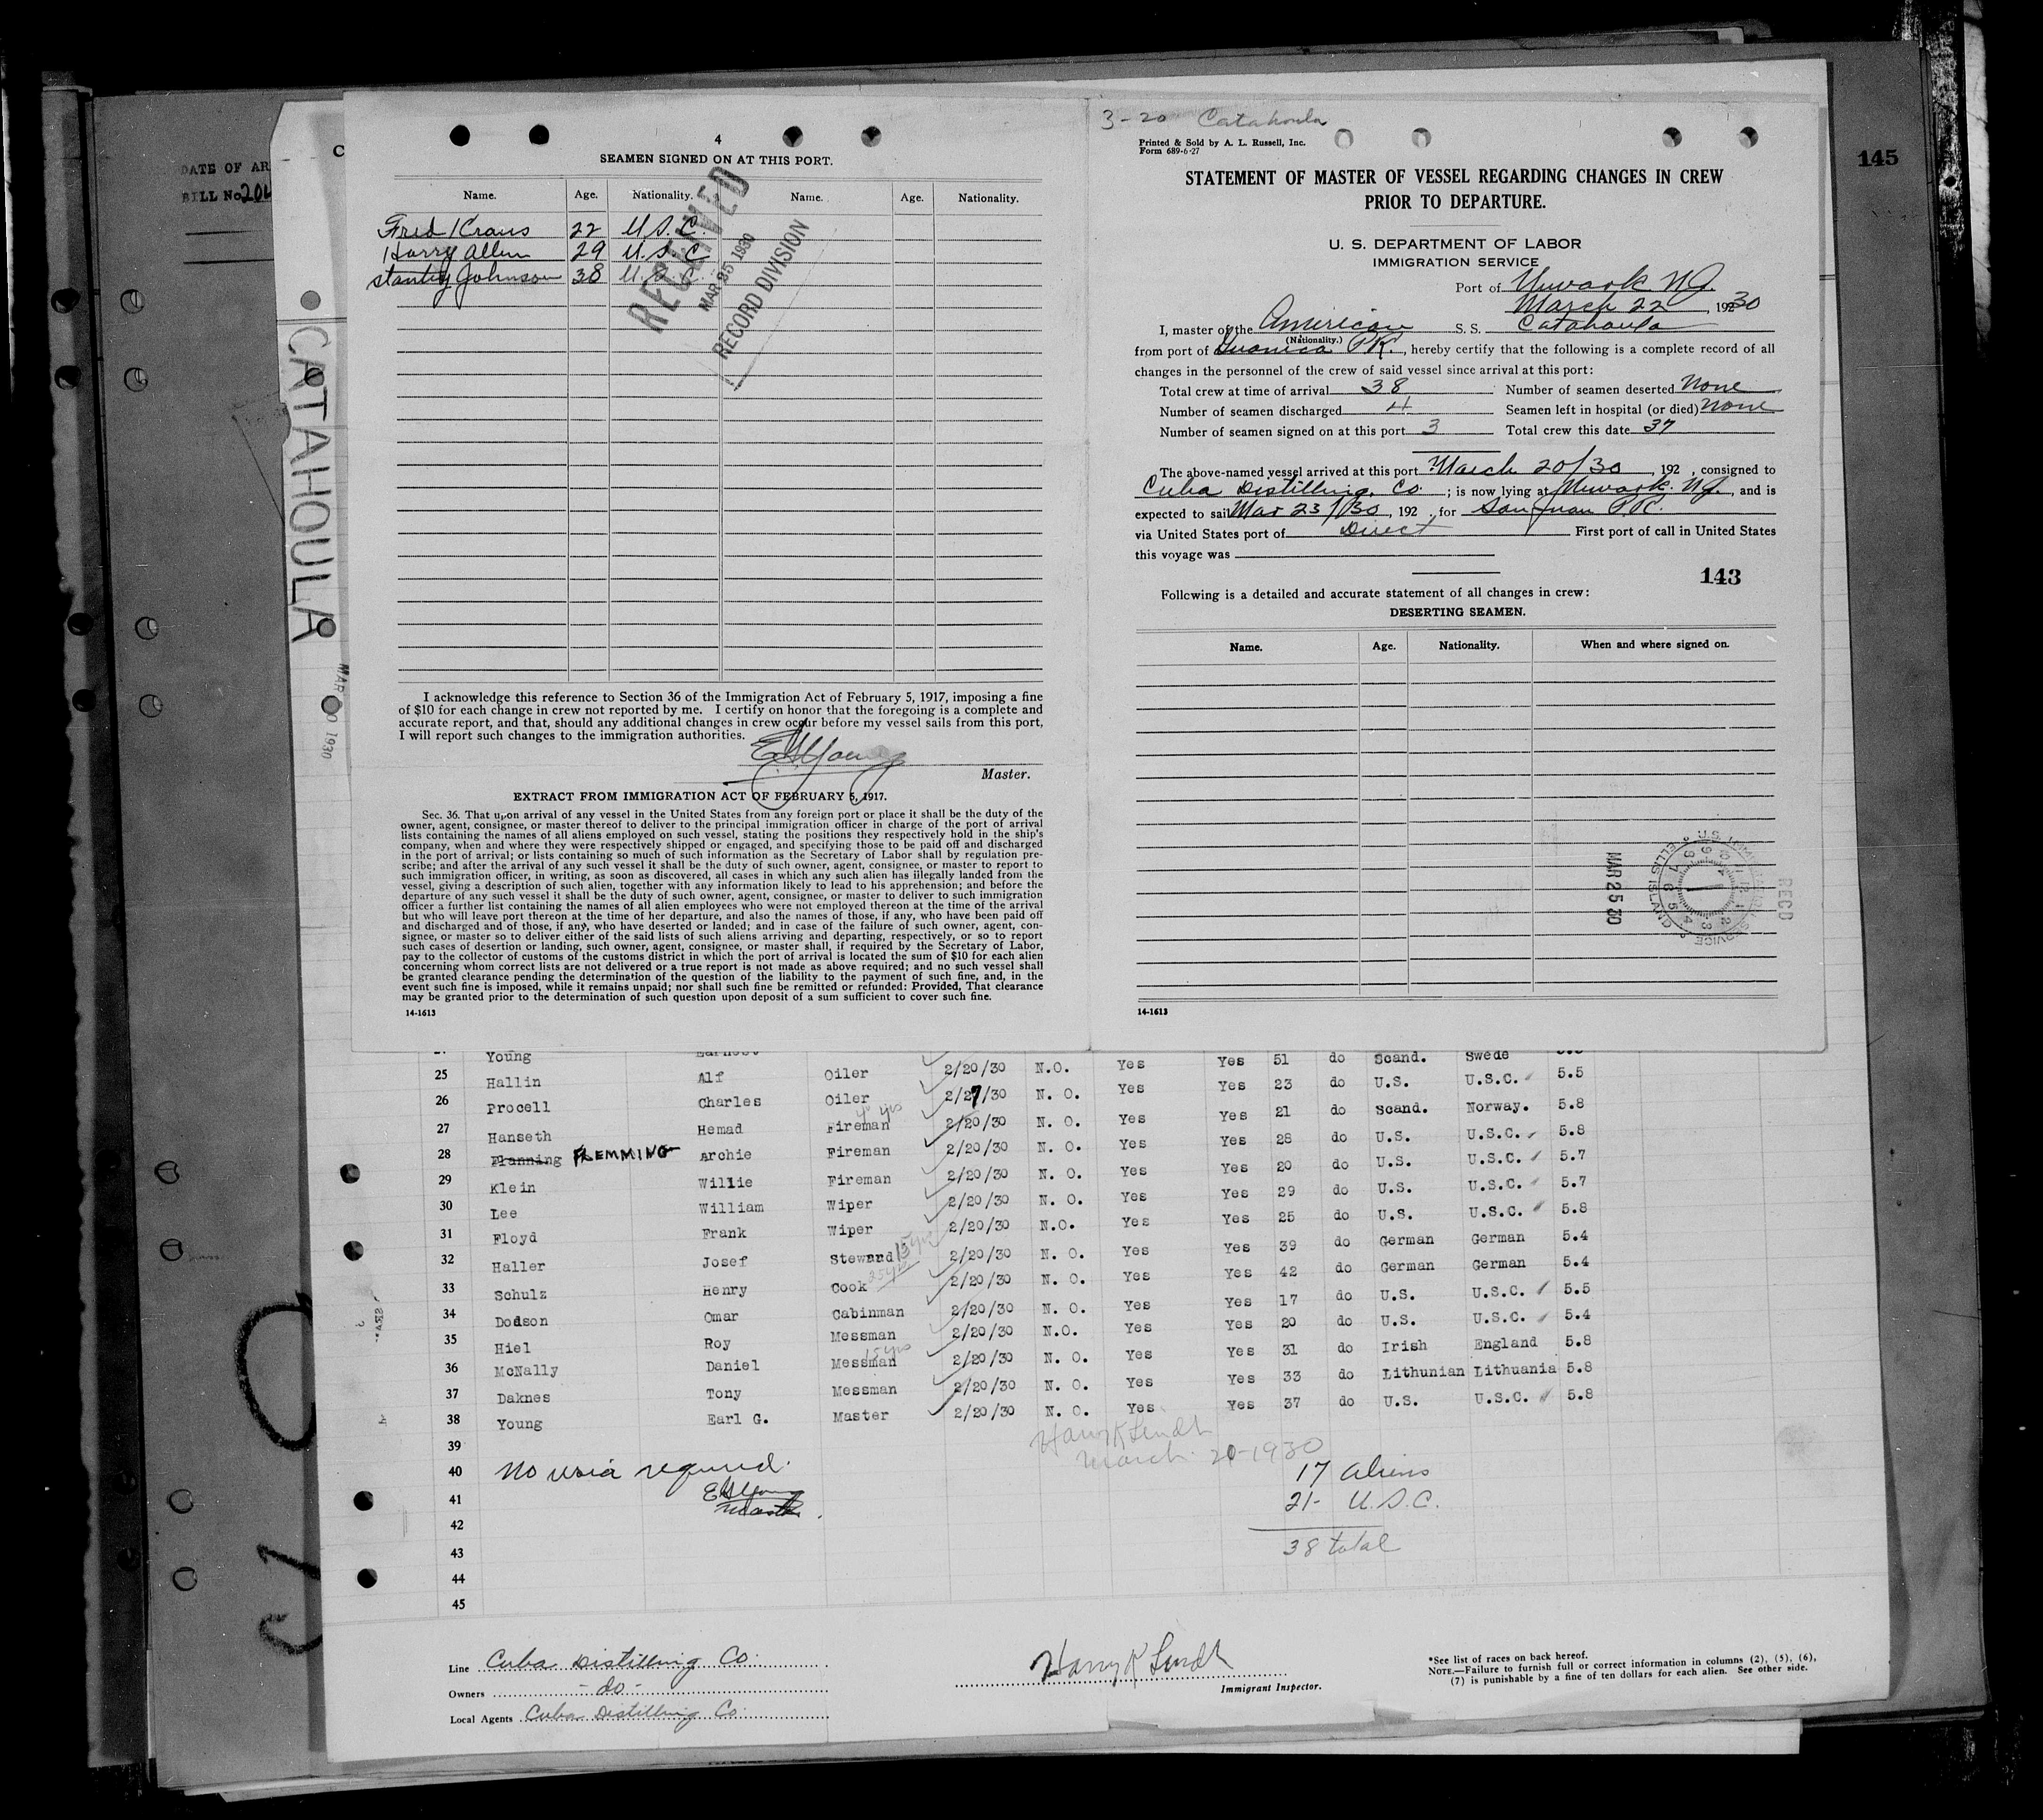 DATE OF AR
BILL No. 204
145
C
CATAHOULA
MAR 0 1930
4
SEAMEN SIGNED ON AT THIS PORT.
Name. Age. Nationality. Name. Age. Nationality.
Fred Kraus 22 U.S.C.
Harry Allen 29 U.S.C
Stanley Johnson 38 U.S.C.
RECEIVED
MAR 25 1930
RECORD DIVISION
I acknowledge this reference to Section 36 of the Immigration Act of February 5, 1917, imposing a fine
of $10 for each change in crew not reported by me. I certify on honor that the foregoing is a complete and
accurate report, and that, should any additional changes in crew occur before my vessel sails from this port,
I will report such changes to the immigration authorities.
E G Young
Master.
EXTRACT FROM IMMIGRATION ACT OF FEBRUARY 5, 1917.
Sec. 36. That upon arrival of any vessel in the United States from any foreign port or place it shall be the duty of the
owner, agent, consignee, or master thereof to deliver to the principal immigration officer in charge of the port of arrival
lists containing the names of all aliens employed on such vessel, stating the positions they respectively hold in the ship's
company, when and where they were respectively shipped or engaged, and specifying those to be paid off and discharged
in the port of arrival; or lists containing so much of such information as the Secretary of Labor shall by regulation pre-
scribe; and after the arrival of any such vessel it shall be the duty of such owner, agent, consignee, or master to report to
such immigration officer, in writing, as soon as discovered, all cases in which any such alien has illegally landed from the
vessel, giving a description of such alien, together with any information likely to lead to his apprehension; and before the
departure of any such vessel it shall be the duty of such owner, agent, consignee, or master to deliver to such immigration
officer a further list containing the names of all alien employees who were not employed thereon at the time of the arrival
but who will leave port thereon at the time of her departure, and also the names of those, if any, who have been paid off
and discharged and of those, if any, who have deserted or landed; and in case of the failure of such owner, agent, con-
signee, or master so to deliver either of the said lists of such aliens arriving and departing, respectively, or so to report
such cases of desertion or landing, such owner, agent, consignee, or master shall, if required by the Secretary of Labor,
pay to the collector of customs of the customs district in which the port of arrival is located the sum of $10 for each alien
concerning whom correct lists are not delivered or a true report is not made as above required; and no such vessel shall
be granted clearance pending the determination of the question of the liability to the payment of such fine, and, in the
event such fine is imposed, while it remains unpaid; nor shall such fine be remitted or refunded: Provided, That clearance
may be granted prior to the determination of such question upon deposit of a sum sufficient to cover such fine.
14-1613
3-20 Catahoula
Printed & Sold by A. L. Russell, Inc.
Form 689-6-27
STATEMENT OF MASTER OF VESSEL REGARDING CHANGES IN CREW
PRIOR TO DEPARTURE.
U. S. DEPARTMENT OF LABOR
IMMIGRATION SERVICE
Port of Newark N.J.
March 22, 1930
I, master of the American S. S. Catahoula
(Nationality.)
from port of Guanica P.R., hereby certify that the following is a complete record of all
changes in the personnel of the crew of said vessel since arrival at this port:
Total crew at time of arrival 38 Number of seamen deserted None
Number of seamen discharged 4 Seamen left in hospital (or died) None
Number of seamen signed on at this port 3 Total crew this date 37
The above-named vessel arrived at this port March 20/30, 192 , consigned to
Cuba Distilling Co ; is now lying at Newark. N.J., and is
expected to sail Mar 23/30, 192 , for San Juan P.R.
via United States port of Direct First port of call in United States
this voyage was
143
Following is a detailed and accurate statement of all changes in crew:
DESERTING SEAMEN.
Name. Age. Nationality. When and where signed on.
U.S. IMMIGRATION SERVICE ELLIS ISLAND
MAR 25 30
RECD
14-1613
Young Earnest Yes Yes 51 do Scand. Swede
25 Hallin Alf Oiler 2/20/30 N.O. Yes Yes 23 do U.S. U.S.C. 5.5
26 Procell Charles Oiler 2/27/30 N. O. Yes Yes 21 do Scand. Norway. 5.8
27 Hanseth Hemad Fireman 2/20/30 N. O. Yes Yes 28 do U.S. U.S.C. 5.8
28 Flanning FLEMMING Archie Fireman 2/20/30 N. O. Yes Yes 20 do U.S. U.S.C. 5.7
29 Klein Willie Fireman 2/20/30 N. O. Yes Yes 29 do U.S. U.S.C. 5.7
30 Lee William Wiper 2/20/30 N. O. Yes Yes 25 do U.S. U.S.C. 5.8
31 Floyd Frank Wiper 2/20/30 N.O. Yes Yes 39 do German German 5.4
32 Haller Josef Steward 15 yrs 2/20/30 N. O. Yes Yes 42 do German German 5.4
33 Schulz Henry Cook 25 yrs 2/20/30 N. O. Yes Yes 17 do U.S. U.S.C. 5.5
34 Dodson Omar Cabinman 2/20/30 N. O. Yes Yes 20 do U.S. U.S.C. 5.4
35 Hiel Roy Messman 2/20/30 N.O. Yes Yes 31 do Irish England 5.8
36 McNally Daniel Messman 15 yrs 2/20/30 N. O. Yes Yes 33 do Lithunian Lithuania 5.8
37 Daknes Tony Messman 2/20/30 N. O. Yes Yes 37 do U.S. U.S.C. 5.8
38 Young Earl G. Master 2/20/30 N. O. Yes
39 Harry K Lindt
March 20-1930
40 No visa required. 17 Aliens
41 E G Young 21- U.S.C.
Master.
42
43 38 total
44
45
Line Cuba Distilling Co.
Owners -do-
Local Agents Cuba Distilling Co.
Harry K Lindt
Immigrant Inspector.
*See list of races on back hereof.
NOTE.—Failure to furnish full or correct information in columns (2), (5), (6),
(7) is punishable by a fine of ten dollars for each alien. See other side.